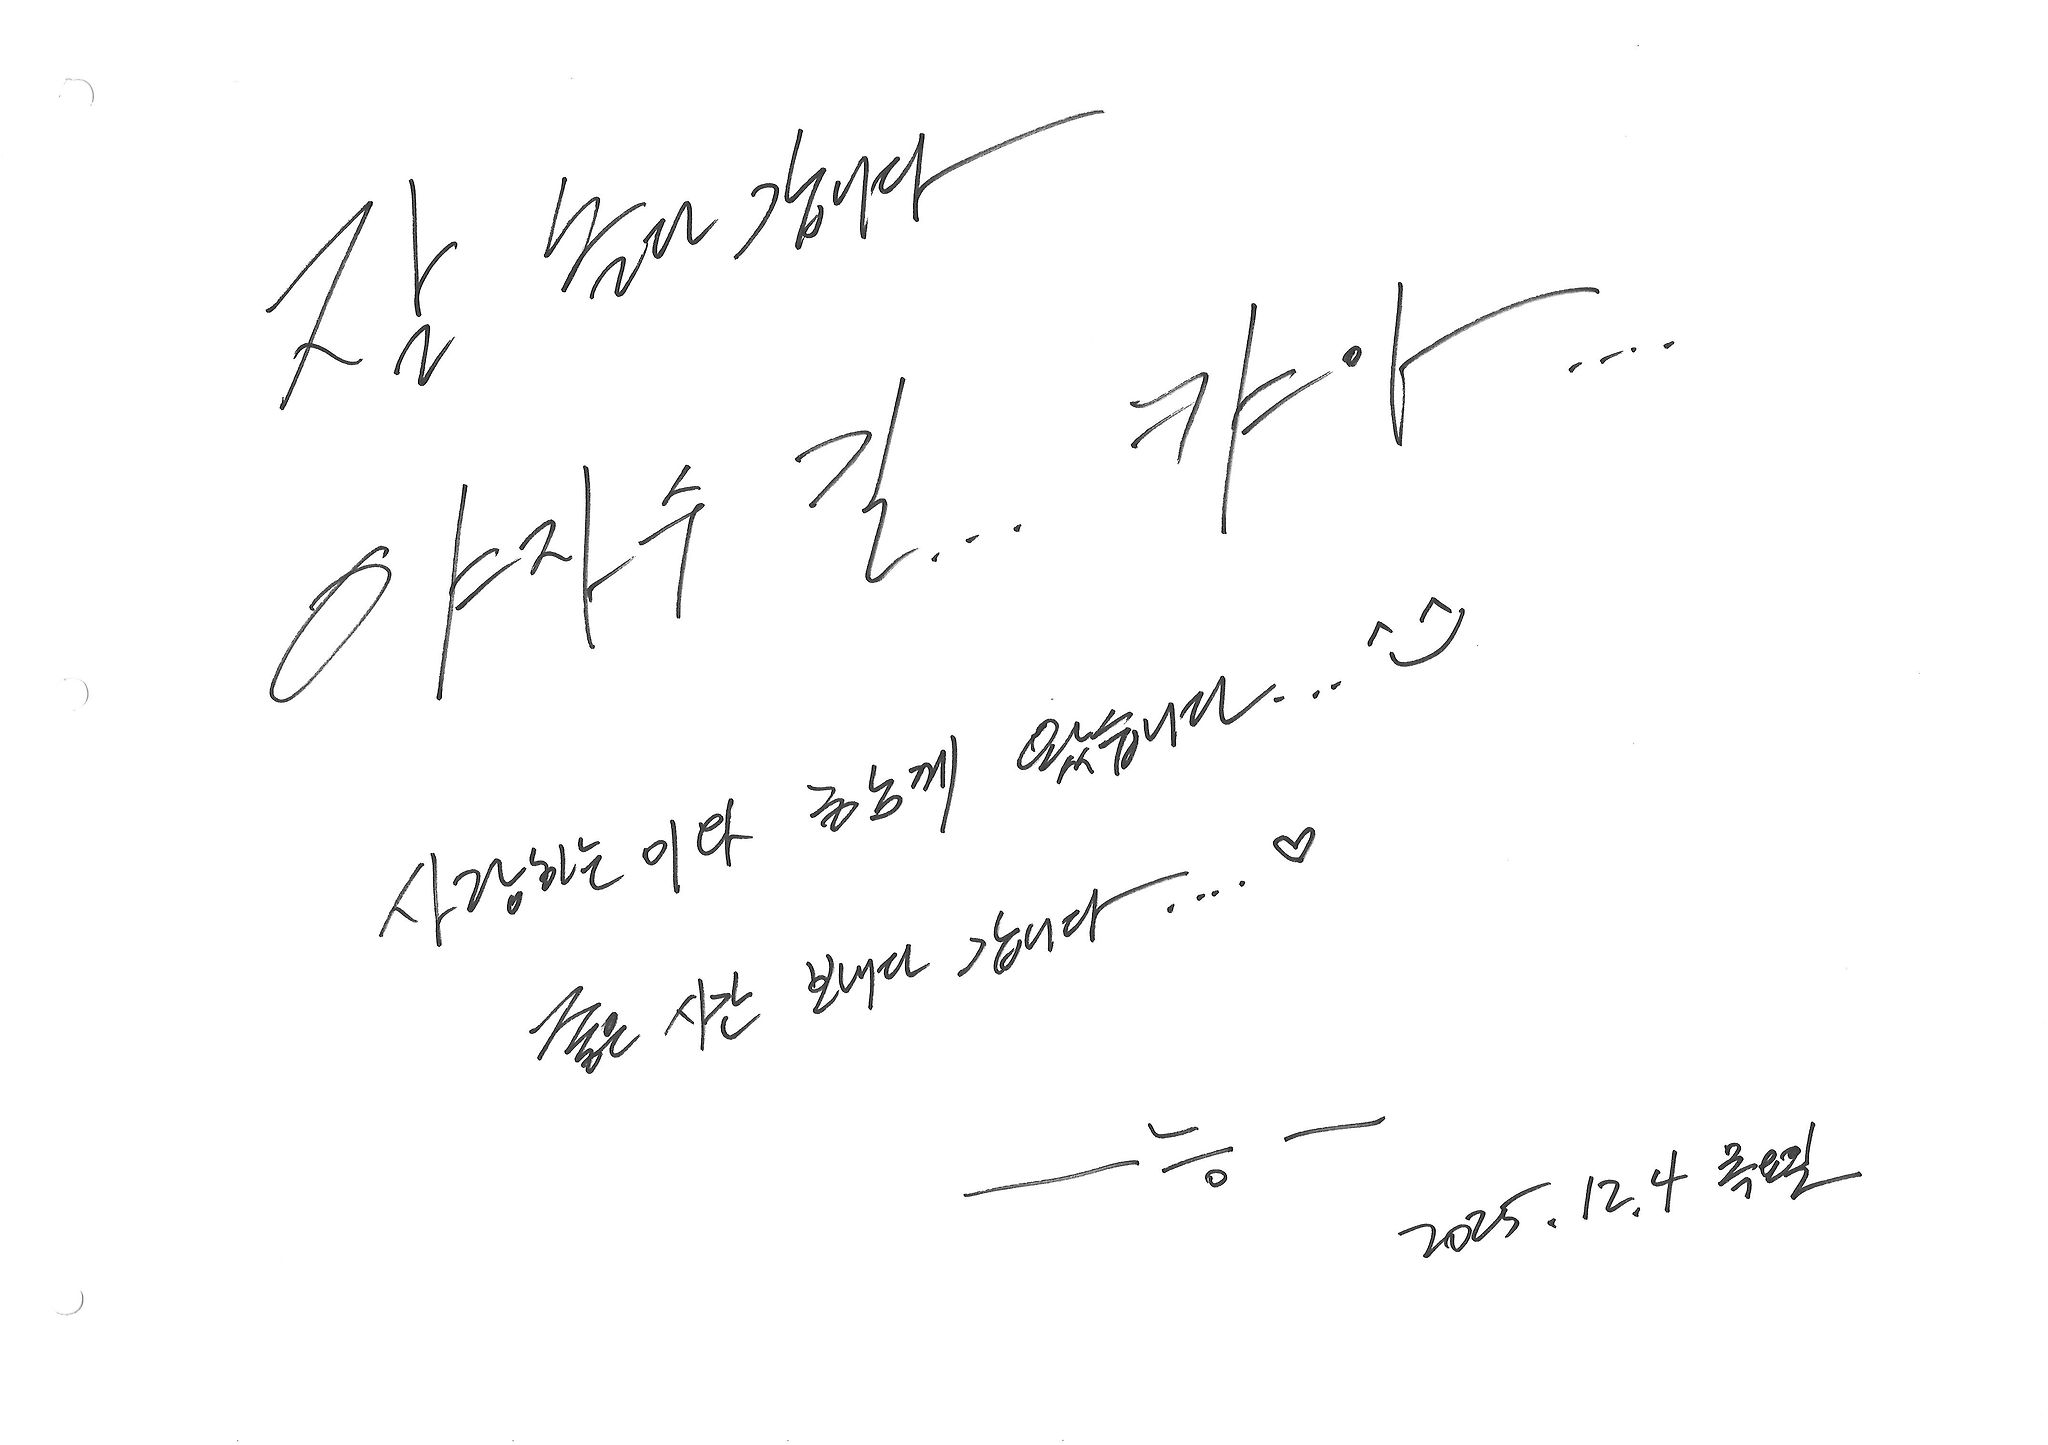 잘 놀다 갑니다
야자수 길... 캬아....
사랑하는 이와 왔습니다.... ^^
좋은 시간 보내다 갑니다.... ♡
—능—
2025.12.4 목요일